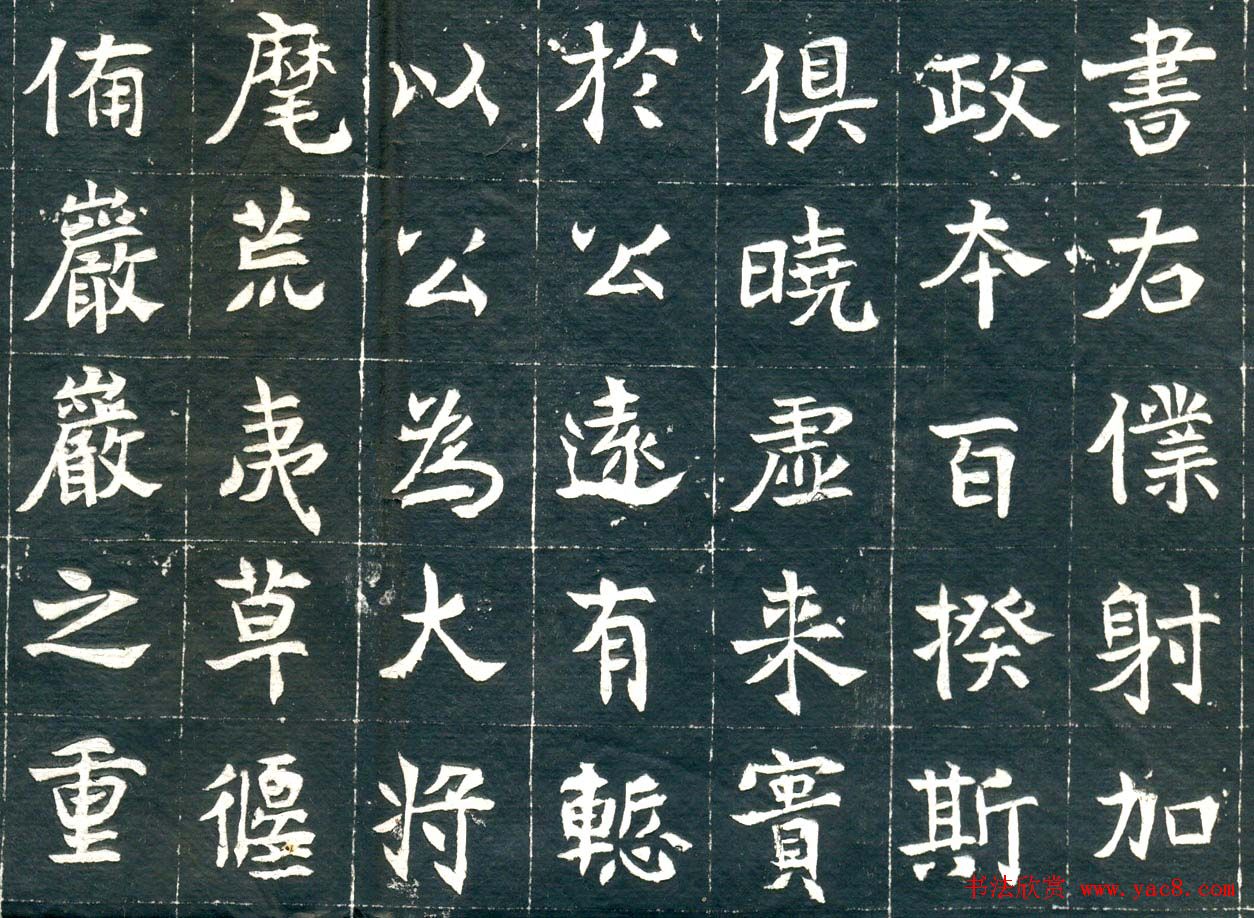 書右僕射加
政本百揆斯
俱曉虛来實
於公遠有慙
以公為大将
麾荒夷草偃
備巖巖之重
书法欣赏 www.yac8.com